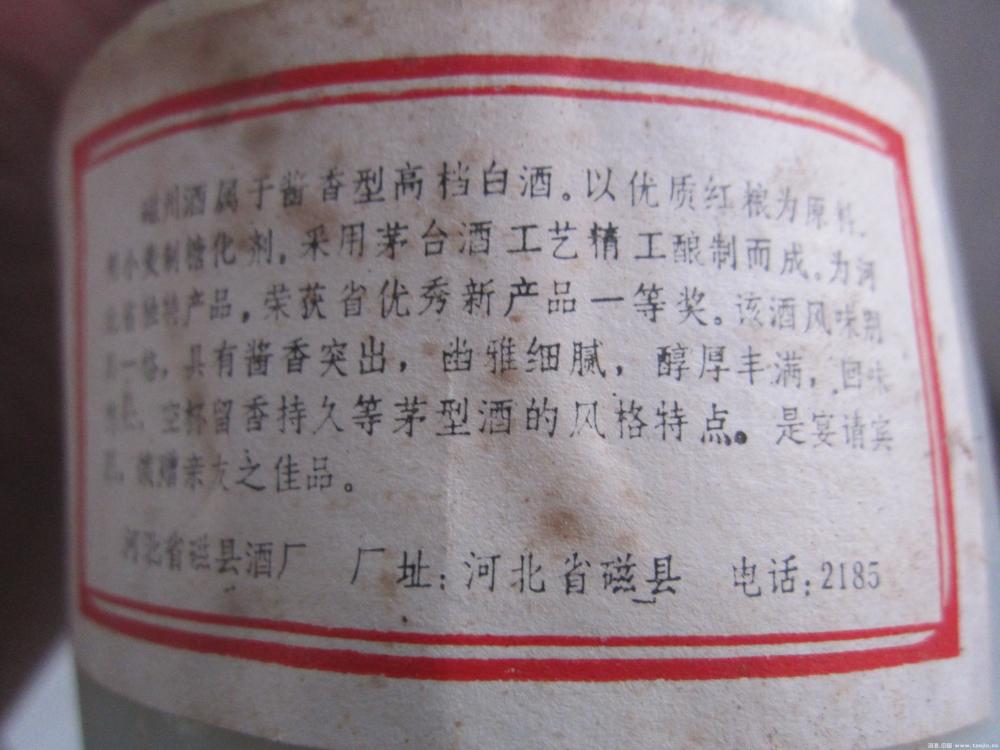 磁州酒属于酱香型高档白酒。以优质红粮为原料,
小麦制糖化剂,采用茅台酒工艺精工酿制而成。为河
北省独特产品,荣获省优秀新产品一等奖。该酒风味别
具一格,具有酱香突出,幽雅细腻,醇厚丰满,回味
空杯留香持久等茅型酒的风格特点。是宴请宾
馈赠亲友之佳品。
河北省磁县酒厂 厂址:河北省磁县 电话:2185